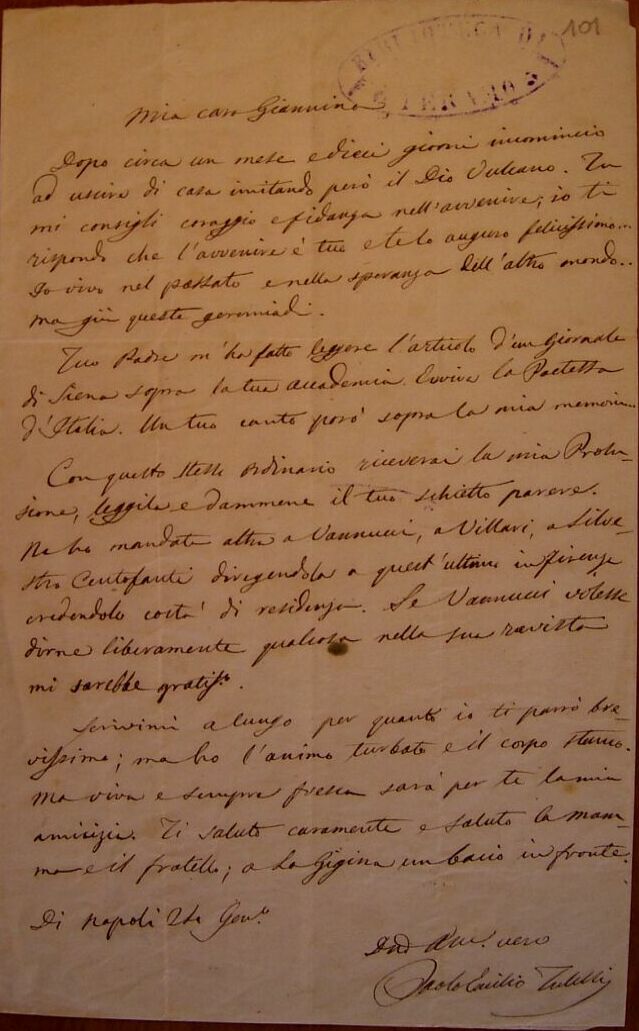 101
BIBLIOTECA DI
TERAMO
Mia cara Giannina
Dopo circa un mese e dieci giorni incomincio
ad uscire di casa imitando però il Dio Vulcano. Tu
mi consigli coraggio e fidanza nell'avvenire; io ti
rispondo che l'avvenire è tuo e te lo auguro felicissimo...
Io vivo nel passato e nella speranza dell'altro mondo..
ma giù queste geremiadi.
Tuo Padre m'ha fatto leggere l'articolo d'un Giornale
di Siena sopra la tua accademia. Evviva la Poetessa
d'Italia. Un tuo canto però sopra la mia memoria...
Con questo stesso ordinario riceverai la mia Prolu-
sione, leggila e dammene il tuo schietto parere.
Ne ho mandate altre a Vannucci, a Villari, a Silve-
stro Centofanti dirigendola a quest'ultimo in Firenze
credendolo costà di residenza. Se Vannucci volesse
dirne liberamente qualcosa nella sua rivista
mi sarebbe gratiss.o.
Scrivimi a lungo per quanto io ti parrò bre-
vissimo; ma ho l'animo turbato e il corpo stanco.
Ma viva e sempre fresca sarà per te la mia
amicizia. Ti saluto caramente e saluto la mam-
ma e il fratello; a la Gigina un bacio in fronte.
Di Napoli 24 Gen.o
Am.o vero
Paolo Emilio Tulelli